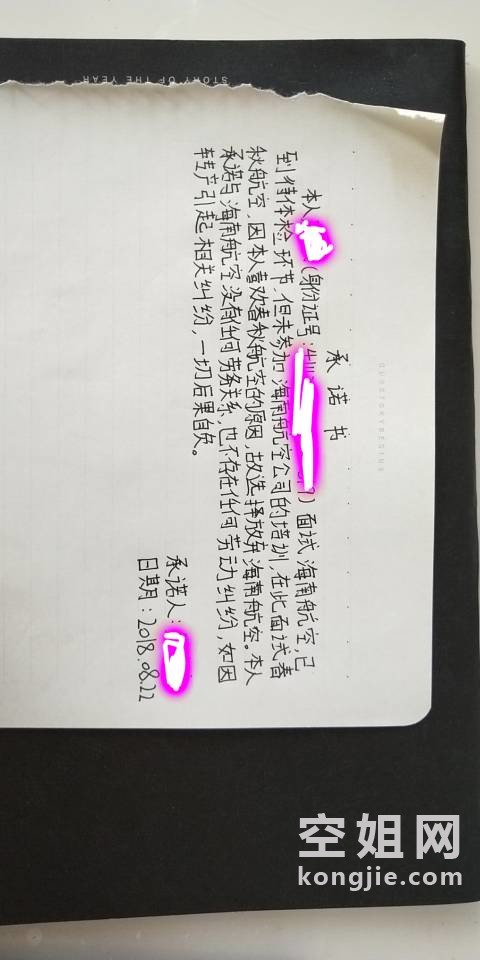 STORY OF THE YEAR
OURSTORYBEGINS
承诺书
本人(身份证号:) 面试海南航空,已
到待体检环节,但未参加海南航空公司的培训,在此面试春
秋航空,因本人喜欢春秋航空的原因,故选择放弃海南航空。本人
承诺与海南航空没有任何劳务关系,也不存在任何劳动纠纷,如因
转产引起相关纠纷,一切后果自负。
承诺人:
日期:2018.08.22
空姐网
kongjie.com